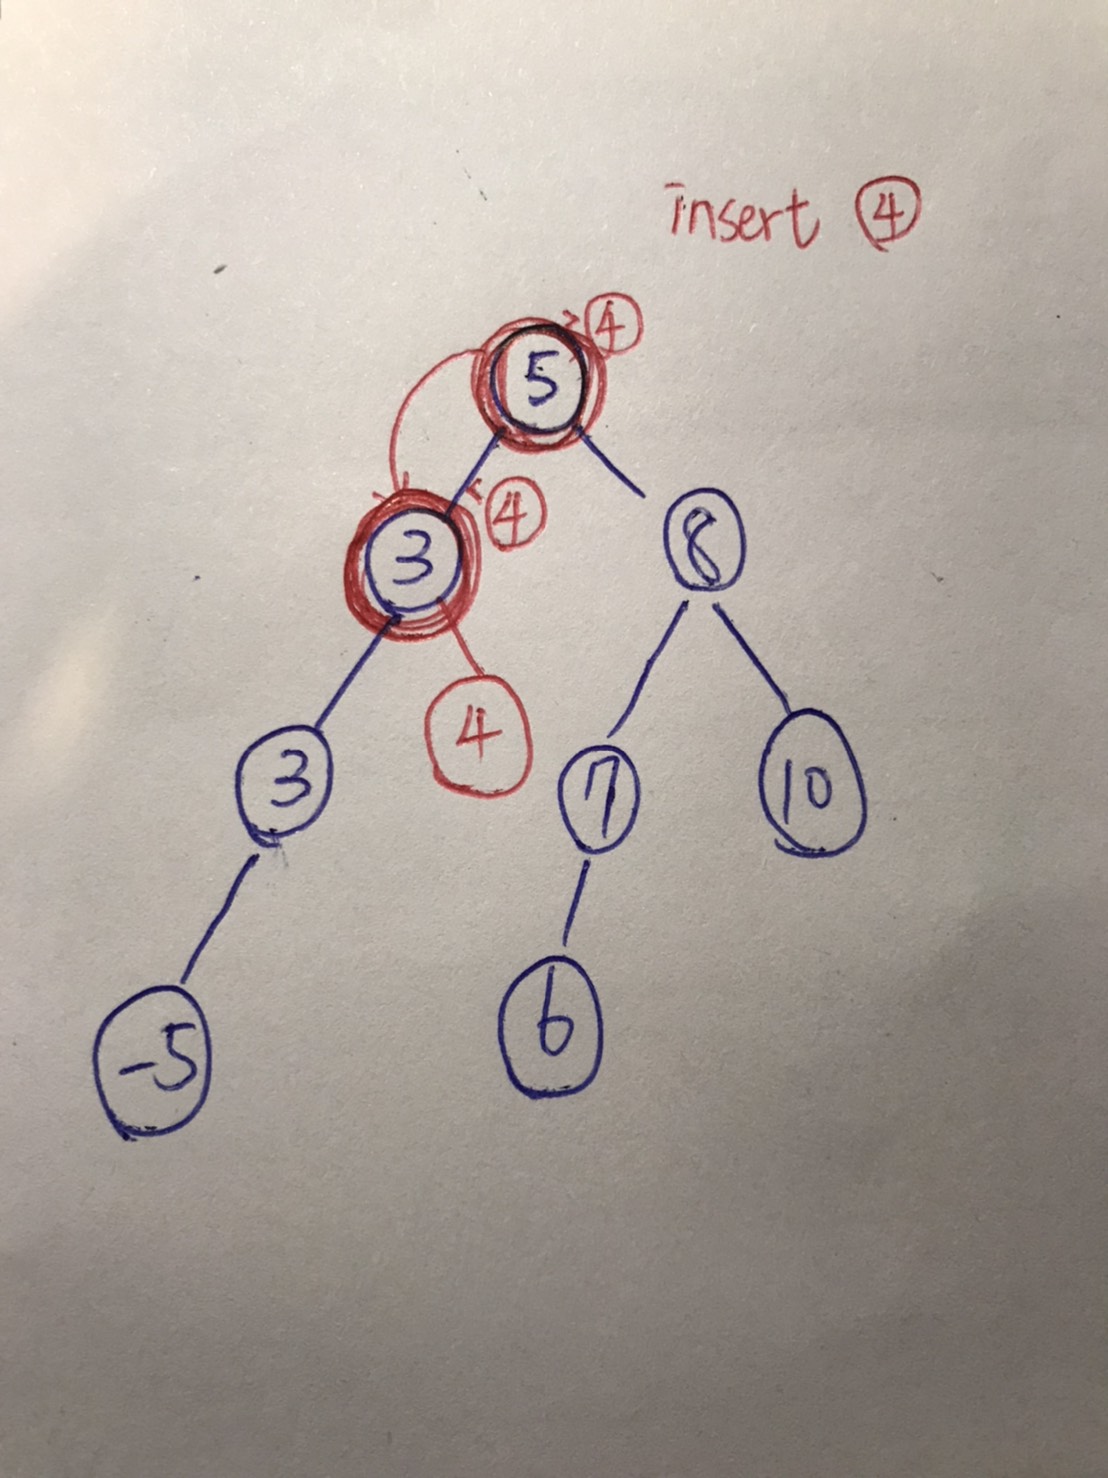 insert 4
> 4
5
< 4
3
8
3
4
7
10
-5
6